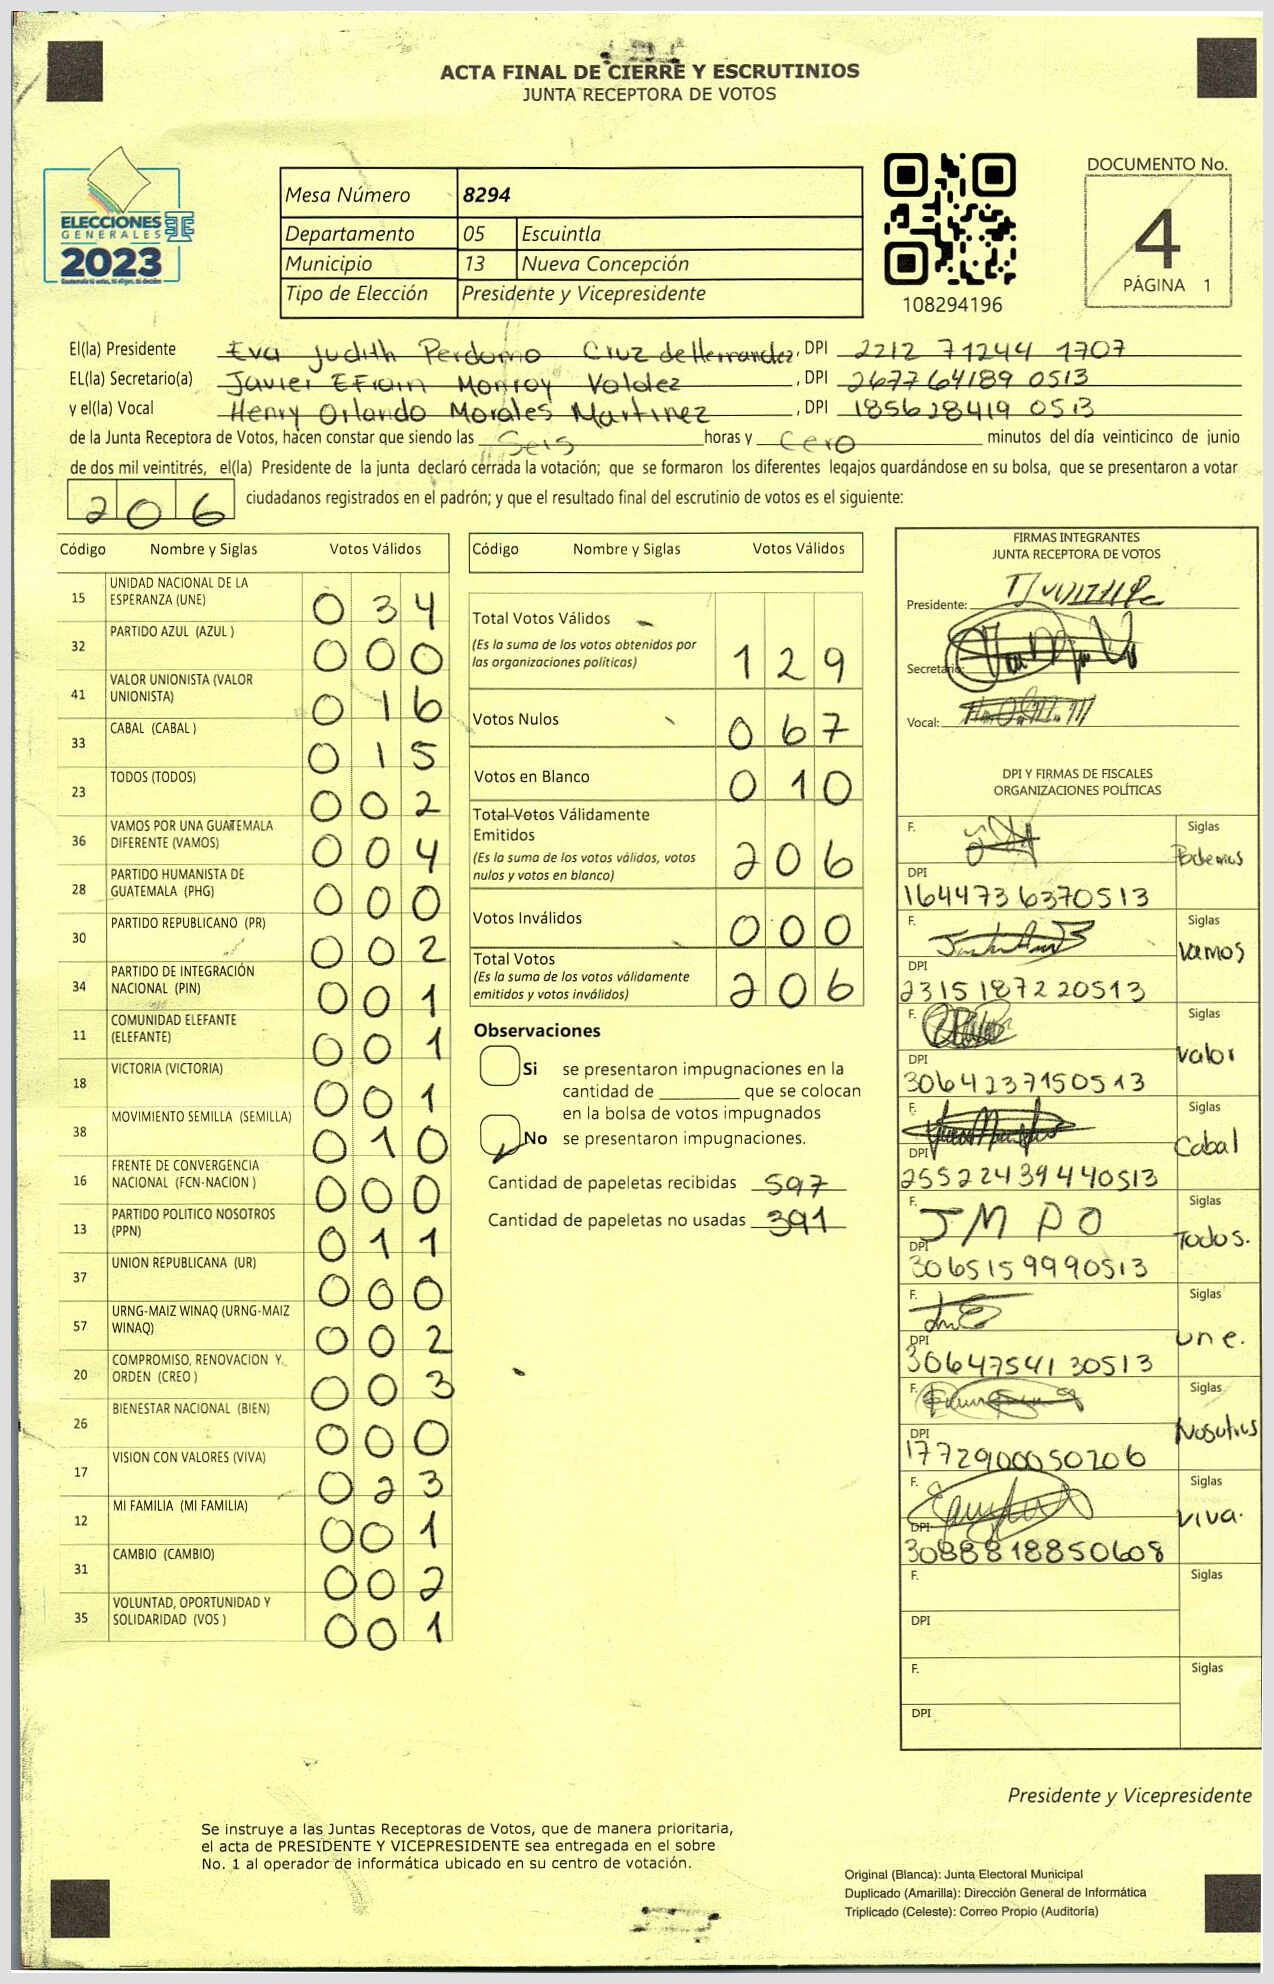 ACTA FINAL DE CIERRE Y ESCRUTINIOS
JUNTA RECEPTORA DE VOTOS
ELECCIONES
GENERALES
2023
Mesa Número 8294
Departamento 05 Escuintla
Municipio 13 Nueva Concepción
Tipo de Elección Presidente y Vicepresidente
108294196
DOCUMENTO No.
4
PÁGINA 1
El(la) Presidente Eva Judith Perdomo Cruz de Hernandez, DPI 2212 71244 1707
EL(la) Secretario(a) Javier EFrain Monroy Valdez, DPI 2677 64189 0513
y el(la) Vocal Henry Orlando Morales Martinez, DPI 1856 28419 0513
de la Junta Receptora de Votos, hacen constar que siendo las Seis horas y Cero minutos del día veinticinco de junio
de dos mil veintitrés, el(la) Presidente de la junta declaró cerrada la votación; que se formaron los diferentes legajos guardándose en su bolsa, que se presentaron a votar
206 ciudadanos registrados en el padrón; y que el resultado final del escrutinio de votos es el siguiente:
Código Nombre y Siglas Votos Válidos
15 UNIDAD NACIONAL DE LA ESPERANZA (UNE) 034
32 PARTIDO AZUL (AZUL ) 000
41 VALOR UNIONISTA (VALOR UNIONISTA) 016
33 CABAL (CABAL ) 015
23 TODOS (TODOS) 002
36 VAMOS POR UNA GUATEMALA DIFERENTE (VAMOS) 004
28 PARTIDO HUMANISTA DE GUATEMALA (PHG) 000
30 PARTIDO REPUBLICANO (PR) 002
34 PARTIDO DE INTEGRACIÓN NACIONAL (PIN) 001
11 COMUNIDAD ELEFANTE (ELEFANTE) 001
18 VICTORIA (VICTORIA) 001
38 MOVIMIENTO SEMILLA (SEMILLA) 010
16 FRENTE DE CONVERGENCIA NACIONAL (FCN-NACION ) 000
13 PARTIDO POLITICO NOSOTROS (PPN) 011
37 UNION REPUBLICANA (UR) 000
57 URNG-MAIZ WINAQ (URNG-MAIZ WINAQ) 002
20 COMPROMISO, RENOVACION Y ORDEN (CREO ) 003
26 BIENESTAR NACIONAL (BIEN) 000
17 VISION CON VALORES (VIVA) 023
12 MI FAMILIA (MI FAMILIA) 001
31 CAMBIO (CAMBIO) 002
35 VOLUNTAD, OPORTUNIDAD Y SOLIDARIDAD (VOS ) 001
Código Nombre y Siglas Votos Válidos
Total Votos Válidos
(Es la suma de los votos obtenidos por
las organizaciones políticas) 129
Votos Nulos 067
Votos en Blanco 010
Total Votos Válidamente
Emitidos
(Es la suma de los votos válidos, votos
nulos y votos en blanco) 206
Votos Inválidos 000
Total Votos
(Es la suma de los votos válidamente
emitidos y votos inválidos) 206
Observaciones
Si se presentaron impugnaciones en la
cantidad de ________ que se colocan
en la bolsa de votos impugnados
No se presentaron impugnaciones.
Cantidad de papeletas recibidas 597
Cantidad de papeletas no usadas 391
FIRMAS INTEGRANTES
JUNTA RECEPTORA DE VOTOS
Presidente:
Secretario:
Vocal:
DPI Y FIRMAS DE FISCALES
ORGANIZACIONES POLÍTICAS
F. Siglas
Podemos
DPI
1644736370513
F. Siglas
Vamos
DPI
2315187220513
F. Siglas
Valor
DPI
3064237150513
F. Siglas
Cabal
DPI
2552243944 0513
F. JMDO Siglas
Todos.
DPI
3065159990513
F. Siglas
une.
DPI
3064754130513
F. Siglas
Nosotros
DPI
1772900050706
F. Siglas
viva.
DPI
3088818850608
F. Siglas
DPI
F. Siglas
DPI
Presidente y Vicepresidente
Se instruye a las Juntas Receptoras de Votos, que de manera prioritaria,
el acta de PRESIDENTE Y VICEPRESIDENTE sea entregada en el sobre
No. 1 al operador de informática ubicado en su centro de votación.
Original (Blanca): Junta Electoral Municipal
Duplicado (Amarilla): Dirección General de Informática
Triplicado (Celeste): Correo Propio (Auditoría)